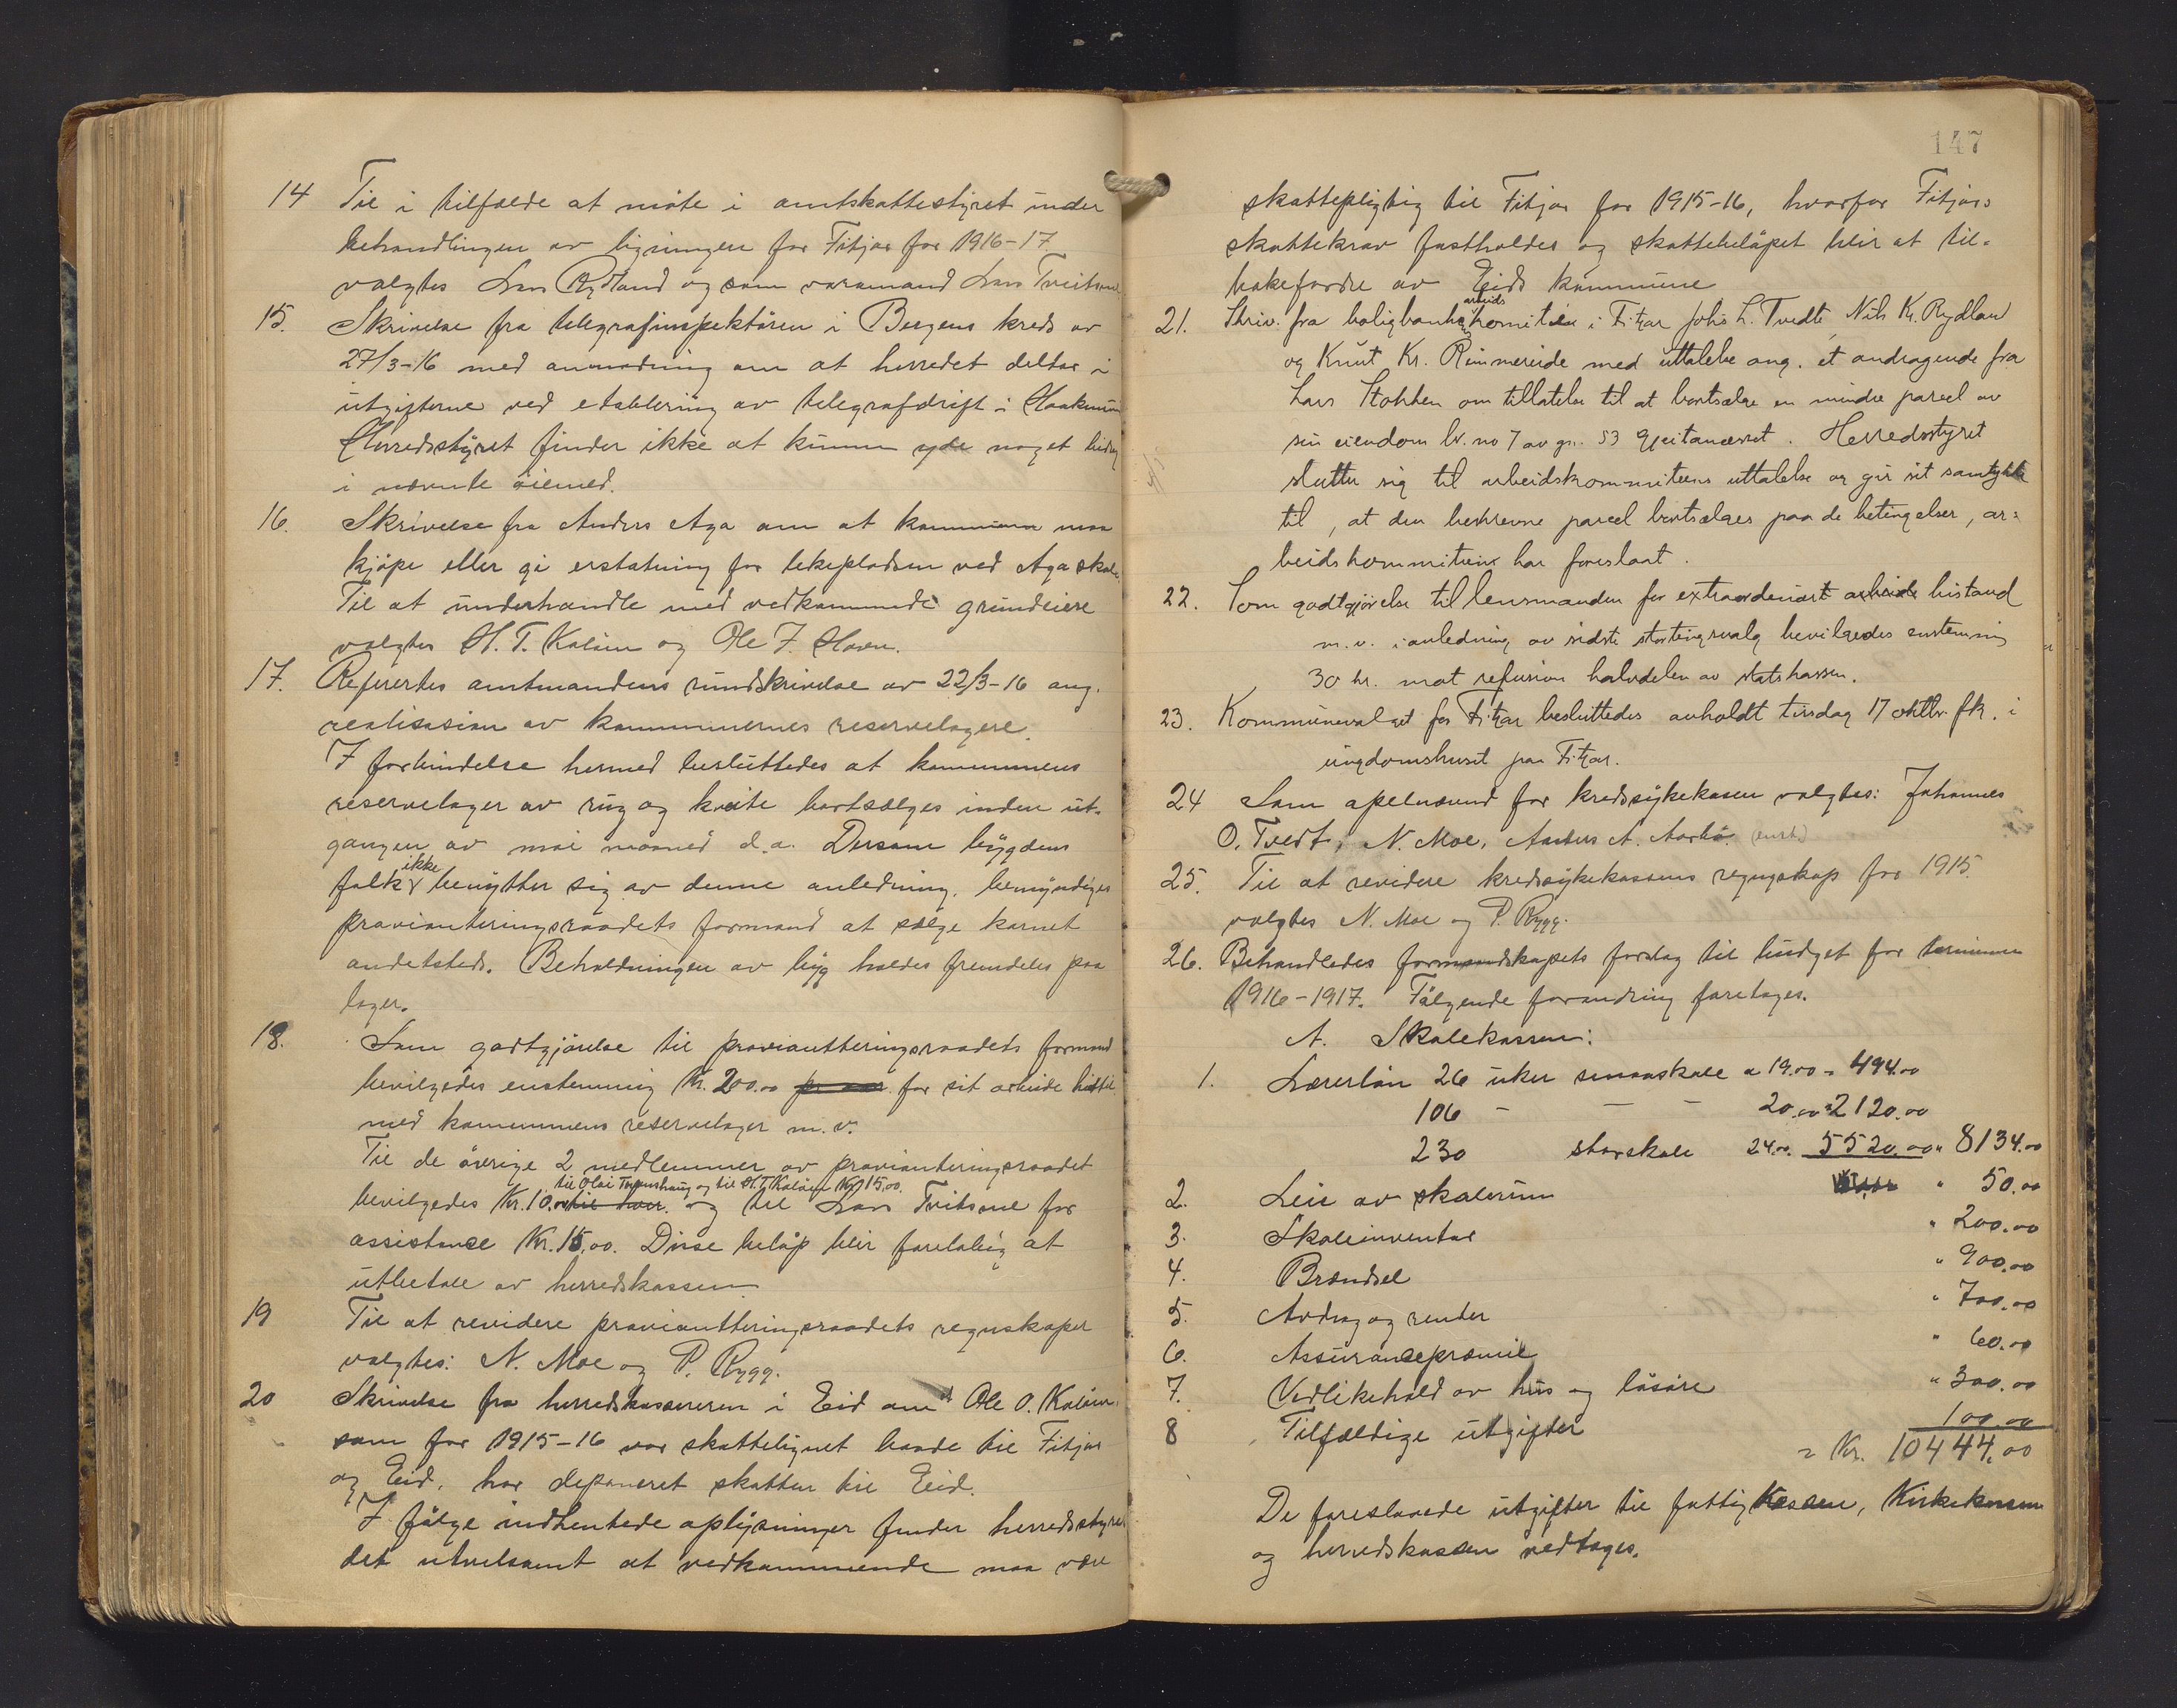 14 Til i tilfælde at møte i amtskattestyret under
behandlingen av ligningen for Fitjar for 1916-17
valgtes Lars Rydland og som varamand Lars Tveitane
15. Skrivelse fra telegrafinspektøren i Bergens kreds av
27/3-16 med anmodning om at herredet deltar i
utgifterne ved etablering av telegrafdrift i
Herredsstyret finder ikke at kunne yde noget bidrag
i nævnte øiemed.
16. Skrivelse fra Anders Aga om at kommunen maa
kjøpe eller gi erstatning for lekepladsen ved Aga skole.
Til at underhandle med vedkommende grundeiere
valgtes H. T. Koløen og Ole J. Havn.
17. Refertes amtmandens rundskrivelse av 22/3-16 ang.
realisasion av kommunernes reservelagere.
I forbindelse hermed besluttedes at kommunens
reservelager av rug og kveite bortsælges inden ut-
gangen av mai maaned d.a. Dersom bygdens
folk ikke benytter sig av denne anledning, bemyndiges
provianteringsraadets formand at sælge kornet
andetsteds. Beholdningen av byg holdes fremdeles paa
lager.
18. Som godtgjørelse til provianteringsraadets formand
bevilgedes enstemmig Kr. 200.00 pr aar for sit arbeide hittil
med kommunens reservelager m.v.
Til de øvrige 2 medlemmer av provianteringsraadet
til Olai og til H. T. Koløen Kr 15,00.
bevilgedes Kr. 10.00 til hver. og til Lars Tveitane for
assistanse Kr. 15,00. Disse beløp blir foreløbig at
utbetale av herredskassen
19 Til at revidere provianteringsraadets regnskaper
valgtes: N. Moe og P. Rygg.
20 Skrivelse fra herredskassereren i Eid om at Ole O. Koløen
som for 1915-16 var skattelignet baade til Fitjar
og Eid, har deponeret skatten til Eid.
I følge indhentede oplysninger finder herredsstyret
det utvilsomt at vedkommende maa være
147
skattepligtig til Fitjar for 1915-16, hvorfor Fitjars
skattekrav fastholdes og skattebeløpet blir at til-
bakefordre av Eids kommune
21. Skriv. fra boligbankens arbeids komite i Fitjar Johs L. Tvedte, Nils Kr. Rydland
og Knut Kr. Rimmereide med uttalelse ang. et andragende fra
Lars Stokken om tillatelse til at bortsælge en mindre parcel av
sin eiendom br. no 7 av gn. 53 Gjeitanæsset. Herredsstyret
slutter sig til arbeidskommiteens uttalelse og gir sit samtykke
til, at den beskrevne parcel bortsælges paa de betingelser, ar-
beidskommiteen har foreslaat.
22. Som godtgjørelse til lensmanden for extraordenært arbeide bistand
m.v. i anledning av sidste stortingsvalg bevilgedes enstemmig
30 kr. mot refusion halvdelen av statskassen.
23. Kommunevalget for Fitjar besluttedes avholdt tirsdag 17 oktbr. fk. i
ungdomshuset paa Fitjar.
24 Som apelnævnd for kredssykekasen valgtes: Johannes
O. Tvedt, N. Moe, Anders A. Aarbø. (enst.)
25. Til at revidere kredssykekassens regnskap for 1915
valgtes N. Moe og P. Rygg.
26. Behandledes formandskapets forslag til budget for terminen
1916-1917. Følgende forandring foretages.
A. Skolekassen:
1. Lærerløn 26 uker smaaskole a 19.00 = 494.00
106 - - - 20.00 = 2120.00
230 storskole 24.00. 5520.00 " 8134.00
2. Leie av skolerum " 50.00
3. Skoleinventar " 200.00
4. Brændsel " 900.00
5. Avdrag og renter " 700.00
6. Assuransepræmie " 60.00
7. Vedlikehold av hus og løsøre " 300.00
8 Tilfældige utgifter 100.00
= Kr. 10444.00
De foreslaaede utgifter til fattigkassen, Kirkekassen
og herredskassen vedtages.